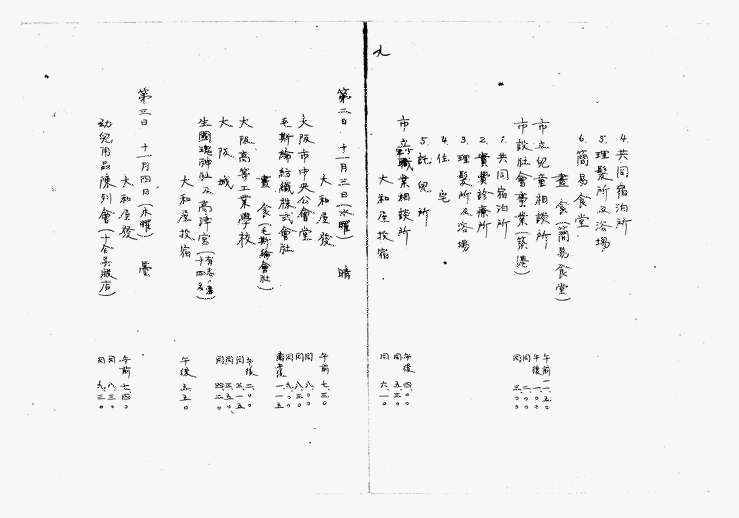 九
4. 共同宿泊所
5. 理髪所及浴場
6. 簡易食堂
晝食(簡易食堂) 午前一一、五〇
市立児童相談所 午後一、〇〇
市設社會事業(築港) 同二、〇〇
同三、〇〇
1. 共同宿泊所
2. 實費診療所
3. 理髪所及浴場
4. 住宅
5. 託児所 午後四、〇〇
市立職業相談所 同五、三〇
大和屋投宿 同六、一〇
第二日 十一月三日(水曜) 晴
大和屋發 午前七、三〇
大阪市中央公會堂 同八、〇〇
同八、三〇
毛斯綸紡織株式會社 同九、〇〇
晝食(毛斯綸會社)
大阪高等工業學校 午後二、〇〇
同三、一五
大阪城 同三、五〇
生國魂神社及高津宮 同四、二〇
大和屋投宿 午後五、五〇
第三日 十一月四日(木曜) 曇
大和屋發 午前七、四〇
幼児用品陳列會(十合呉服店) 同八、三〇
同九、三〇